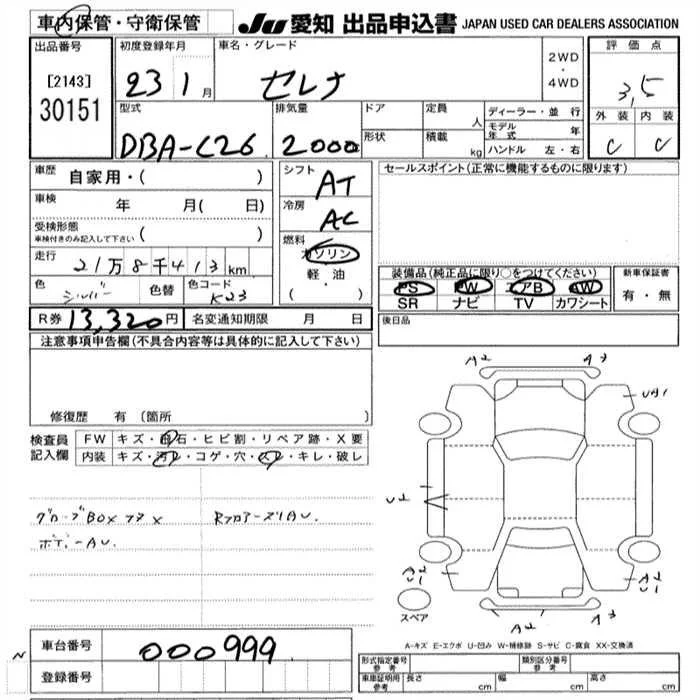 車内保管・守衛保管
JU 愛知 出品申込書 JAPAN USED CAR DEALERS ASSOCIATION
出品番号
[2143]
30151
初度登録年月
23 1 月
車名・グレード
セレナ
2WD
・
4WD
評価点
3,5
外装 内装
C C
型式
DBA-C26
排気量
2000
ドア
形状
定員 人
積載 kg
ディーラー・並行
モデル年式 年
ハンドル 左・右
車歴
自家用・( )
車検 年 月( 日)
受検形態
車検付きのみ記入して下さい ( )
走行
21万8千413km
色 シルバー 色替 色コード K23
シフト
AT
冷房
AC
燃料
ガソリン
軽油
( ・ )
セールスポイント(正常に機能するものに限ります)
装備品(純正品に限り○をつけてください)
PS PW エアB AW
SR ナビ TV カワシート
新車保証書
有・無
R券 13,320円 名変通知期限 月 日
後日品
注意事項申告欄(不具合内容等は具体的に記入して下さい)
修復歴 有(箇所
検査員記入欄
FW キズ・飛石・ヒビ割・リペア跡・X要
内装 キズ・汚レ・コゲ・穴・スレ・キレ・破レ
グローブBOXフタX RフロアーズリAU.
ボデーAU.
A2 A3
UA1
U2
A2
U1
A2
U1
A2 A3
スペア
A-キズ E-エクボ U-凹み W-補修跡 S-サビ C-腐食 XX-交換済
N
車台番号 000999
登録番号
形式指定番号 参考
類別区分番号 参考
車庫証明用 参考 長さ cm 幅 cm 高さ cm